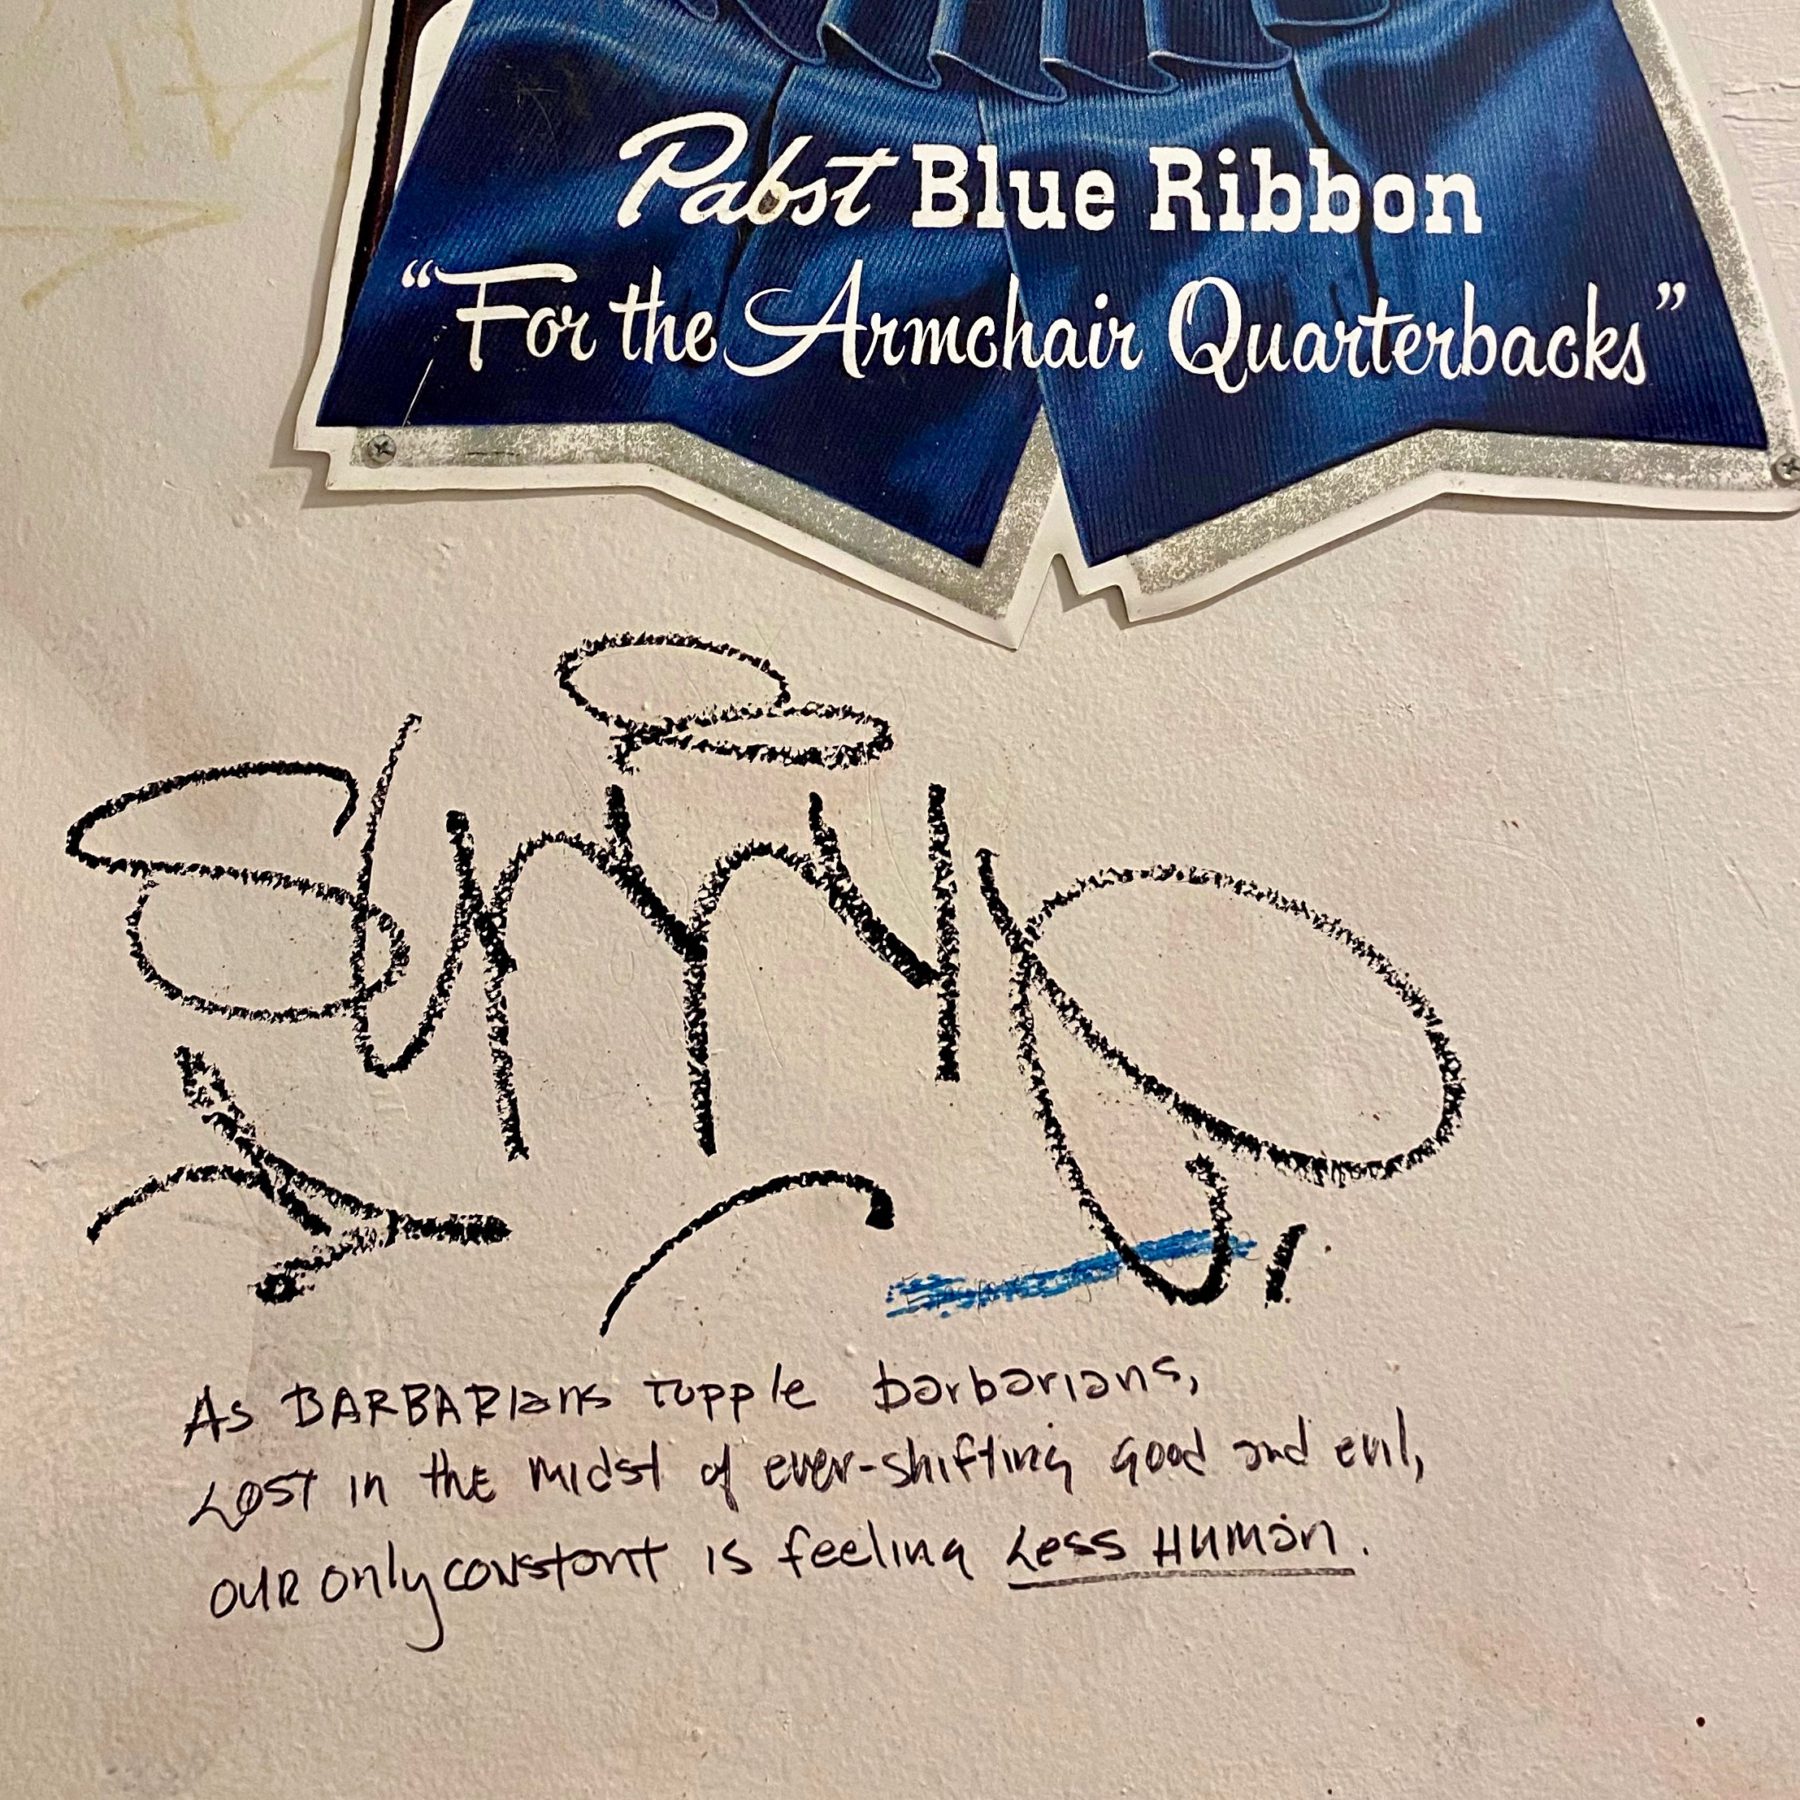 Pabst Blue Ribbon
“For the Armchair Quarterbacks”
As BARBARIans topple barbarians,
Lost in the midst of ever-shifting good and evil,
OUR only constant is feeling Less Human.